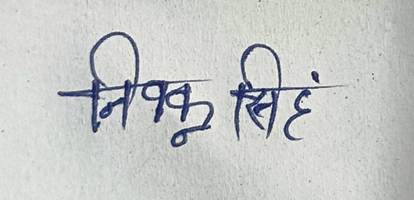 निक्कू सिहं